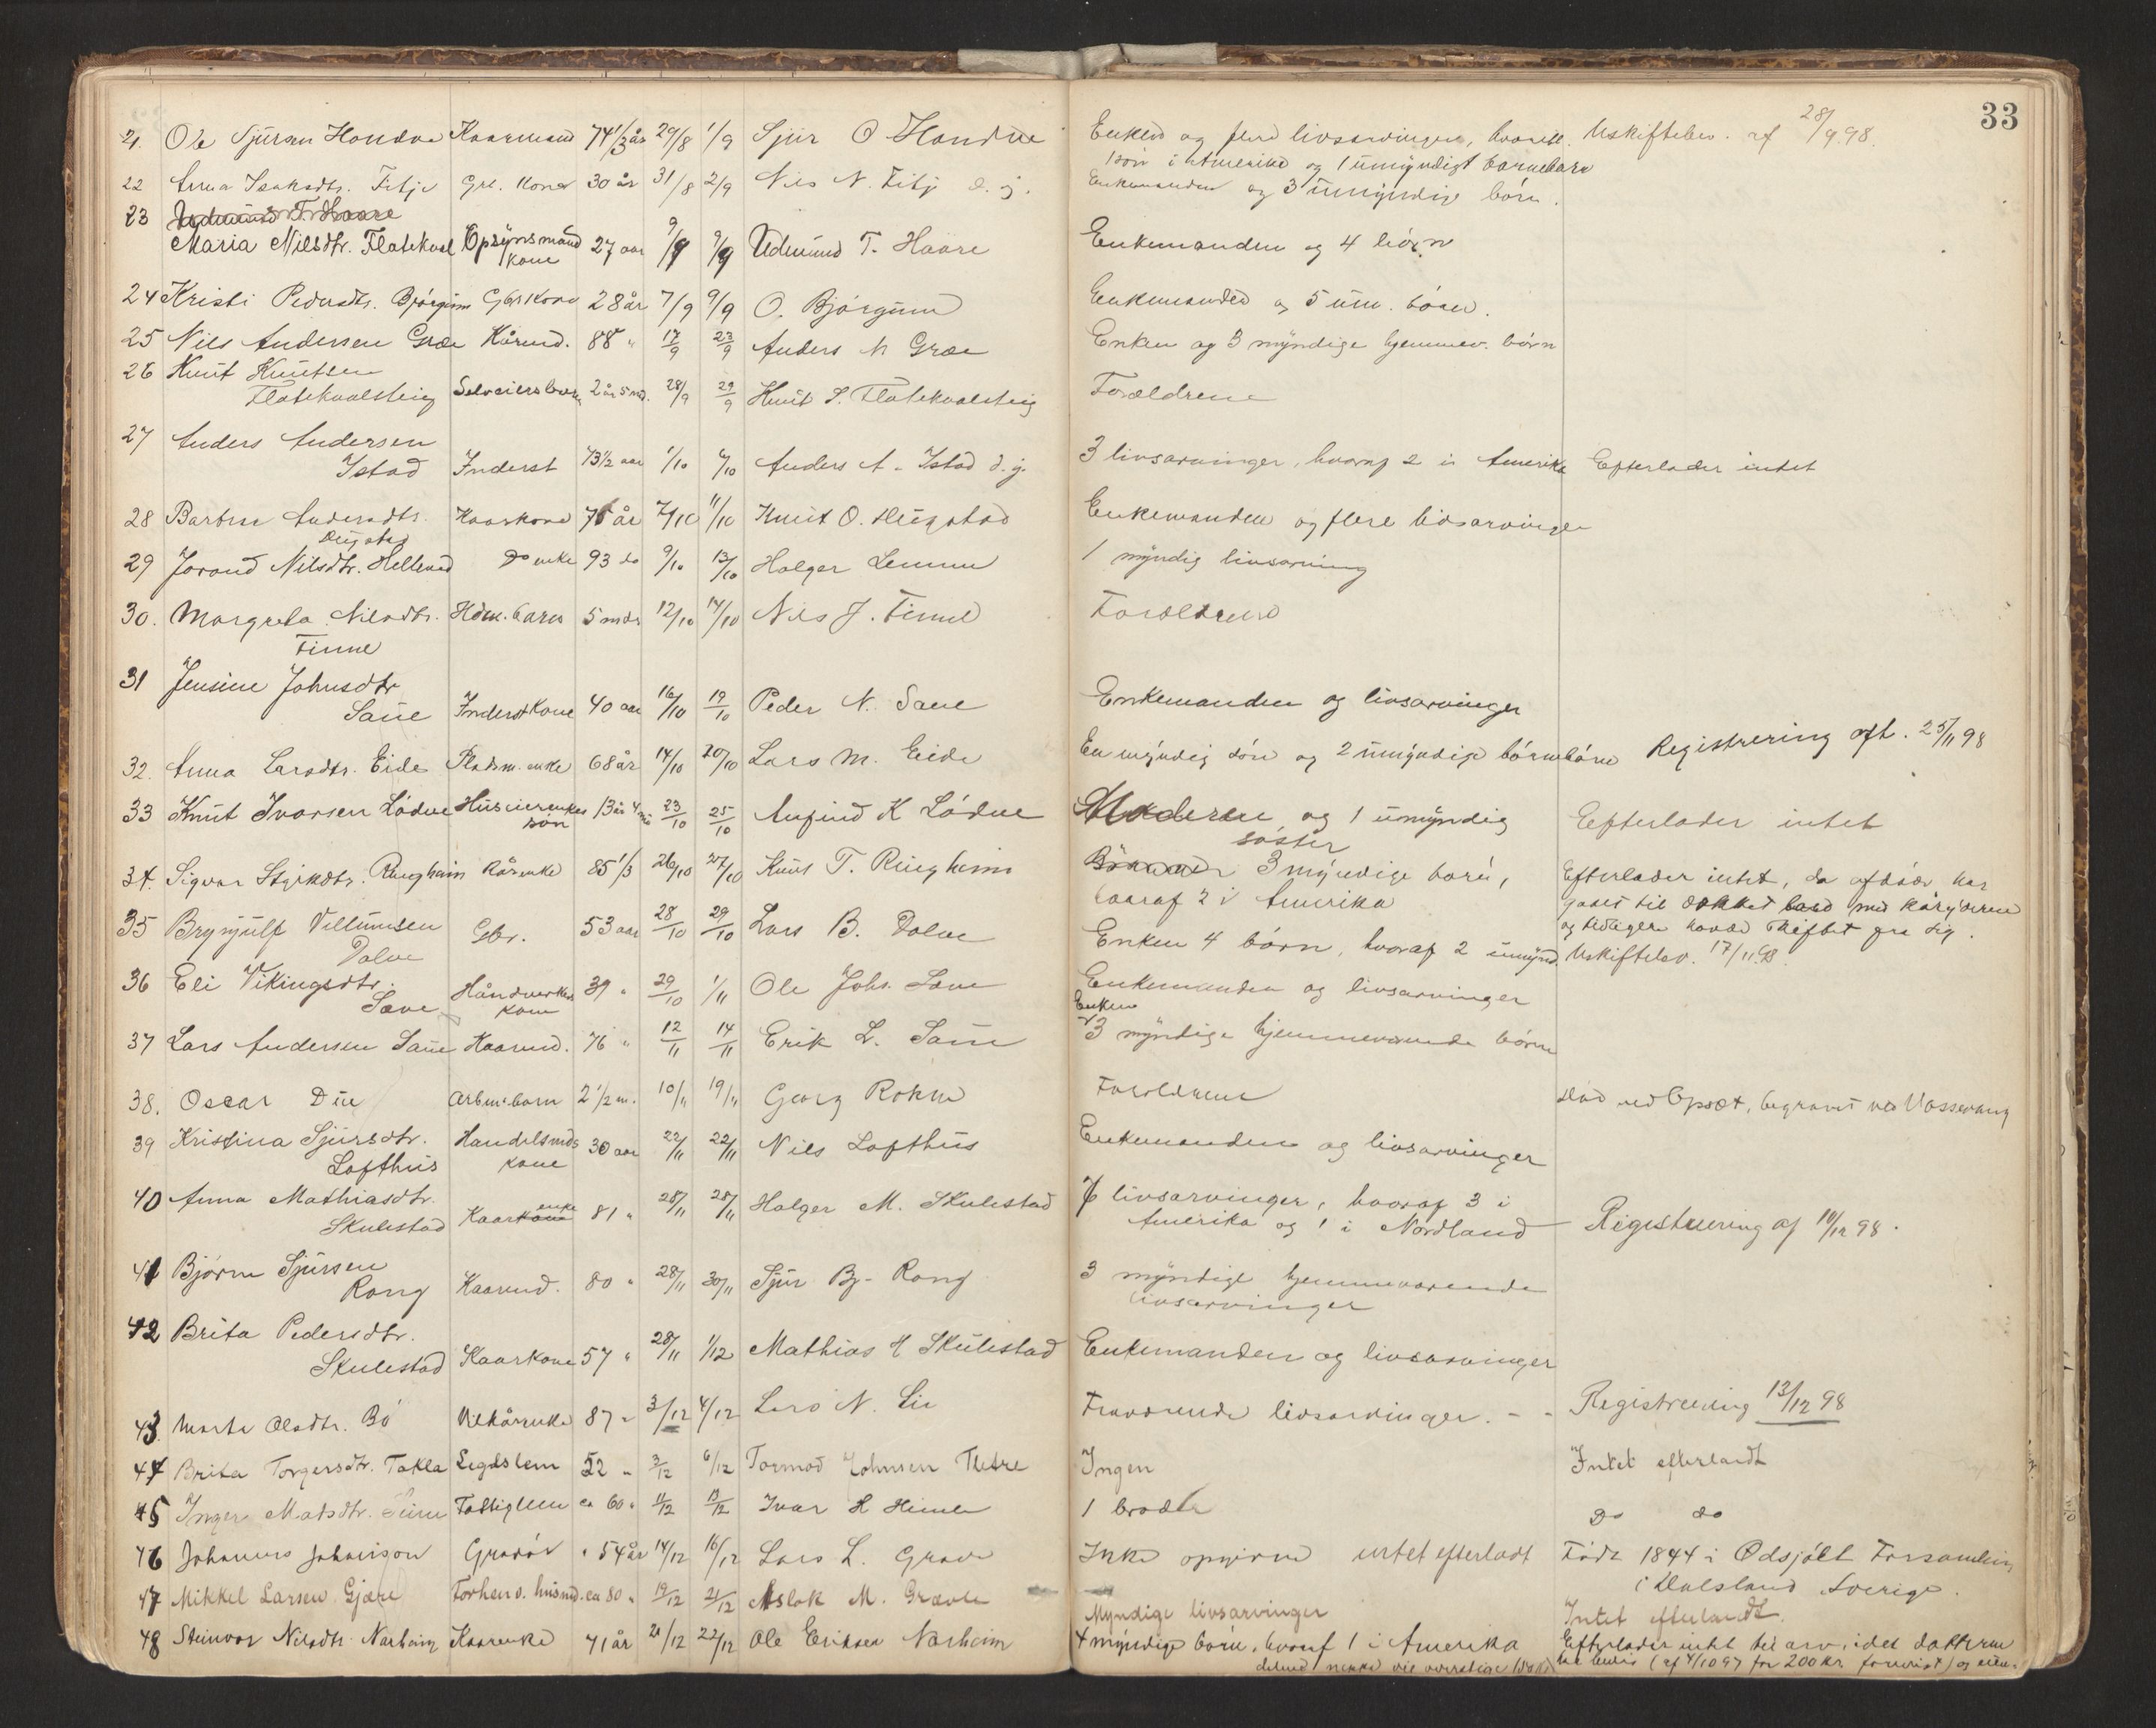 33
21. Ole Sjursen Hondve Kaarmand 74 1/3 år 29/8 1/9 Sjur O Hondve Enken og flere livsarvinger, hvoraf Uskiftebev. af 28/9 98.
1 søn i Amerika og 1 umyndigt barnebarn
22 Anna Isaksdtr. Fitje Gbr. kone 30 år 31/8 2/9 Nils N. Fitje d. y. Enkemanden og 3 umyndige børn.
23
Maria Nilsdtr. Flatekval Opsynsmand 27 aar 9/9 Udmund T. Haare Enkemanden og 4 børn
kone
24 Kristi Pedersdtr. Bjørgum Gbr kone 28 år 7/9 9/9 O. Bjørgum Enkemanden og 5 um. børn.
25 Nils Andersen Græe Kårmd. 88 " 17/9 23/9 Anders N Græe Enken og 3 myndige hjemmev. børn
26 Knut Knutsen
Flatekvalsteig Selveiersbarn 2 år 5 md. 28/9 29/9 Knut S. Flatekvalsteig Forældrene
27 Anders Andersen
Istad Inderst 73 1/2 aar 1/10 6/10 Anders A. Istad d. y. 3 livsarvinger, hvoraf 2 i Amerika Efterlader intet
28 Barbra Andersdtr. Kaarkone 76 år 7/10 11/10 Knut O. Dugstad Enkemanden og flere livsarvinger
Dugstad
29 Jorand Nilsdtr. Helleved Do enke 93 do 9/10 13/10 Holger Lemme 1 myndig livsarving
30. Margreta Nilsdtr. Hdm. barn 5 mdr 12/10 14/10 Nils J. Finne Forældrene
Finne
31 Jensine Johnsdtr
Saue Inderstkone 40 aar 16/10 19/10 Peder N. Saue Enkemanden og livsarvinger
32. Anna Larsdtr. Eide Pladsm. enke 68 år 14/10 20/10 Lars M. Eide En myndig søn og 2 umyndige børnebørn Registrering aft. 25/11 98
33 Knut Ivarsen Lødve Huseierenkes 13 år 4 md 23/10 25/10 Anfind K Lødve Moderen og 1 umyndig Efterlader intet
søn søster
34. Sigvor Styrkdtr. Ringheim Kårenke 85 1/3 26/10 27/10 Knut T. Ringheim 3 myndige børn, Efterlader intet, da afdøde har
hvoraf 2 i Amerika
35 Brynjulf Villumsen Gbr. 53 aar 28/10 29/10 Lars B. Dolve Enken 4 børn, hvoraf 2 umynd. Uskiftebev. 17/11 98.
Dolve
36 Eli Vikingsdtr. Håndverker 39 " 29/10 1/11 Ole Johs. Saue Enkemanden og livsarvinger
Saue kone Enken
37 Lars Andersen Saue Kaarmd. 76 " 12/11 14/11 Erik L. Saue 3 myndige hjemmeværende børn
38. Oscar Due Arbm. barn 2 1/2 m. 10/11 19/11 Georg Rokne Forældrene død ved Opsæt, begravet ved Vossevang
39 Kristina Sjursdtr. Handelsmds 30 aar 22/11 22/11 Nils Lofthus Enkemanden og livsarvinger
Lofthus kone
40 Anna Mathiasdtr. enke 28/11 28/11 Holger M. Skulestad 7 livsarvinger, hvoraf 3 i
Skulestad Kaarkone 81 " Amerika og 1 i Nordland Registrering af 10/12 98.
41 Bjørne Sjursen
Rong Kaarmd. 80 " 28/11 30/11 Sjur Bj. Rong 3 myndige hjemmeværende
livsarvinger
42 Brita Pedersdtr.
Skulestad Kaarkone 57 " 28/11 1/12 Mathias H Skulestad Enkemanden og livsarvinger
43. Marta Olsdtr. Bø Vilkårenke 87 " 3/12 4/12 Lars N. Lie Fraværende livsarvinger. - - Registrering 13/12 98
44 Brita Torgersdtr. Takla Legdslem 52 " 3/12 6/12 Tormod Johnsen Tletre Ingen Intet efterladt
45 Inger Matsdtr. Fattiglem ca 60 " 11/12 13/12 Ivar H Himle 1 broder Do do
46 Johannes Johanison " 54 år 14/12 16/12 Lars L. Grave Ikke opgivne intet efterladt Født 1844 i Ødsjölt Forsamling
i Dalsland Sverige.
47 Mikkel Larsen Gjære Forhenv. husmd. ca 80 " 19/12 21/12 Aslak M. Grævle Myndige livsarvinger Intet efterladt.
48 Steinvor Nilsdtr. Norheim Kaarenke 71 år 20/12 22/12 Ole Eriksen Norheim 4 myndige børn, hvoraf 1 i Amerika Efterlader intet til arv, idet datteren
(af 4/10 97 for 200 kr.